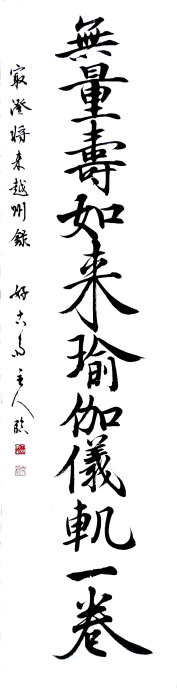 無量壽如来瑜伽儀軌一巻
最澄将来越州録 好古斋主人臨